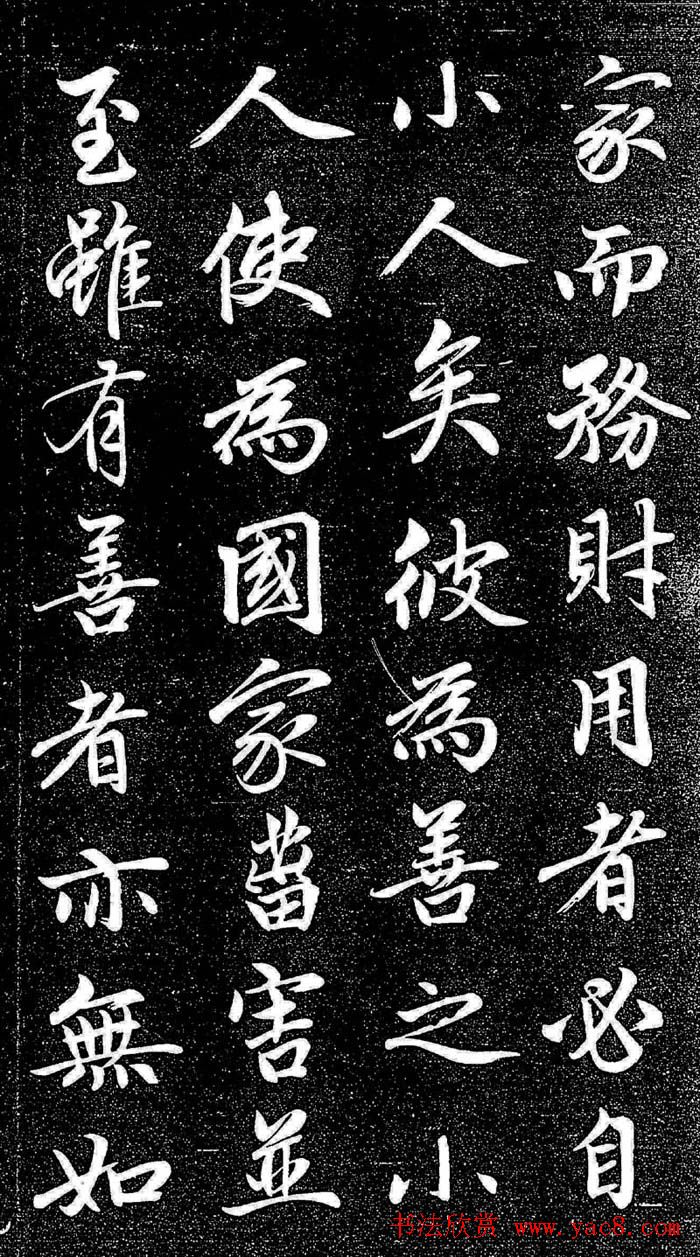 家而務財用者必自
小人矣彼為善之小
人使為國家菑害並
至雖有善者亦無如
书法欣赏 www.yac8.com